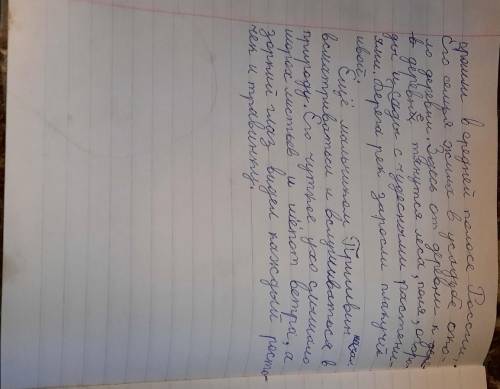 прошли в средней полосе России.
Его семья жила в усадьбе око-
ло деревни. Здесь от деревни к дере-
вне тянутся леса, поля, огоро-
ды и сады с чудесными растени-
ями. Берега рек заросли плакучей
ивой.
Ещё мальчиком Пришвин начал
всматриваться и вслушиваться в
природу. Его чуткое ухо слышало
шорох листьев и шёпот ветра, а
зоркий глаз видел каждый росто-
чек и травинку.